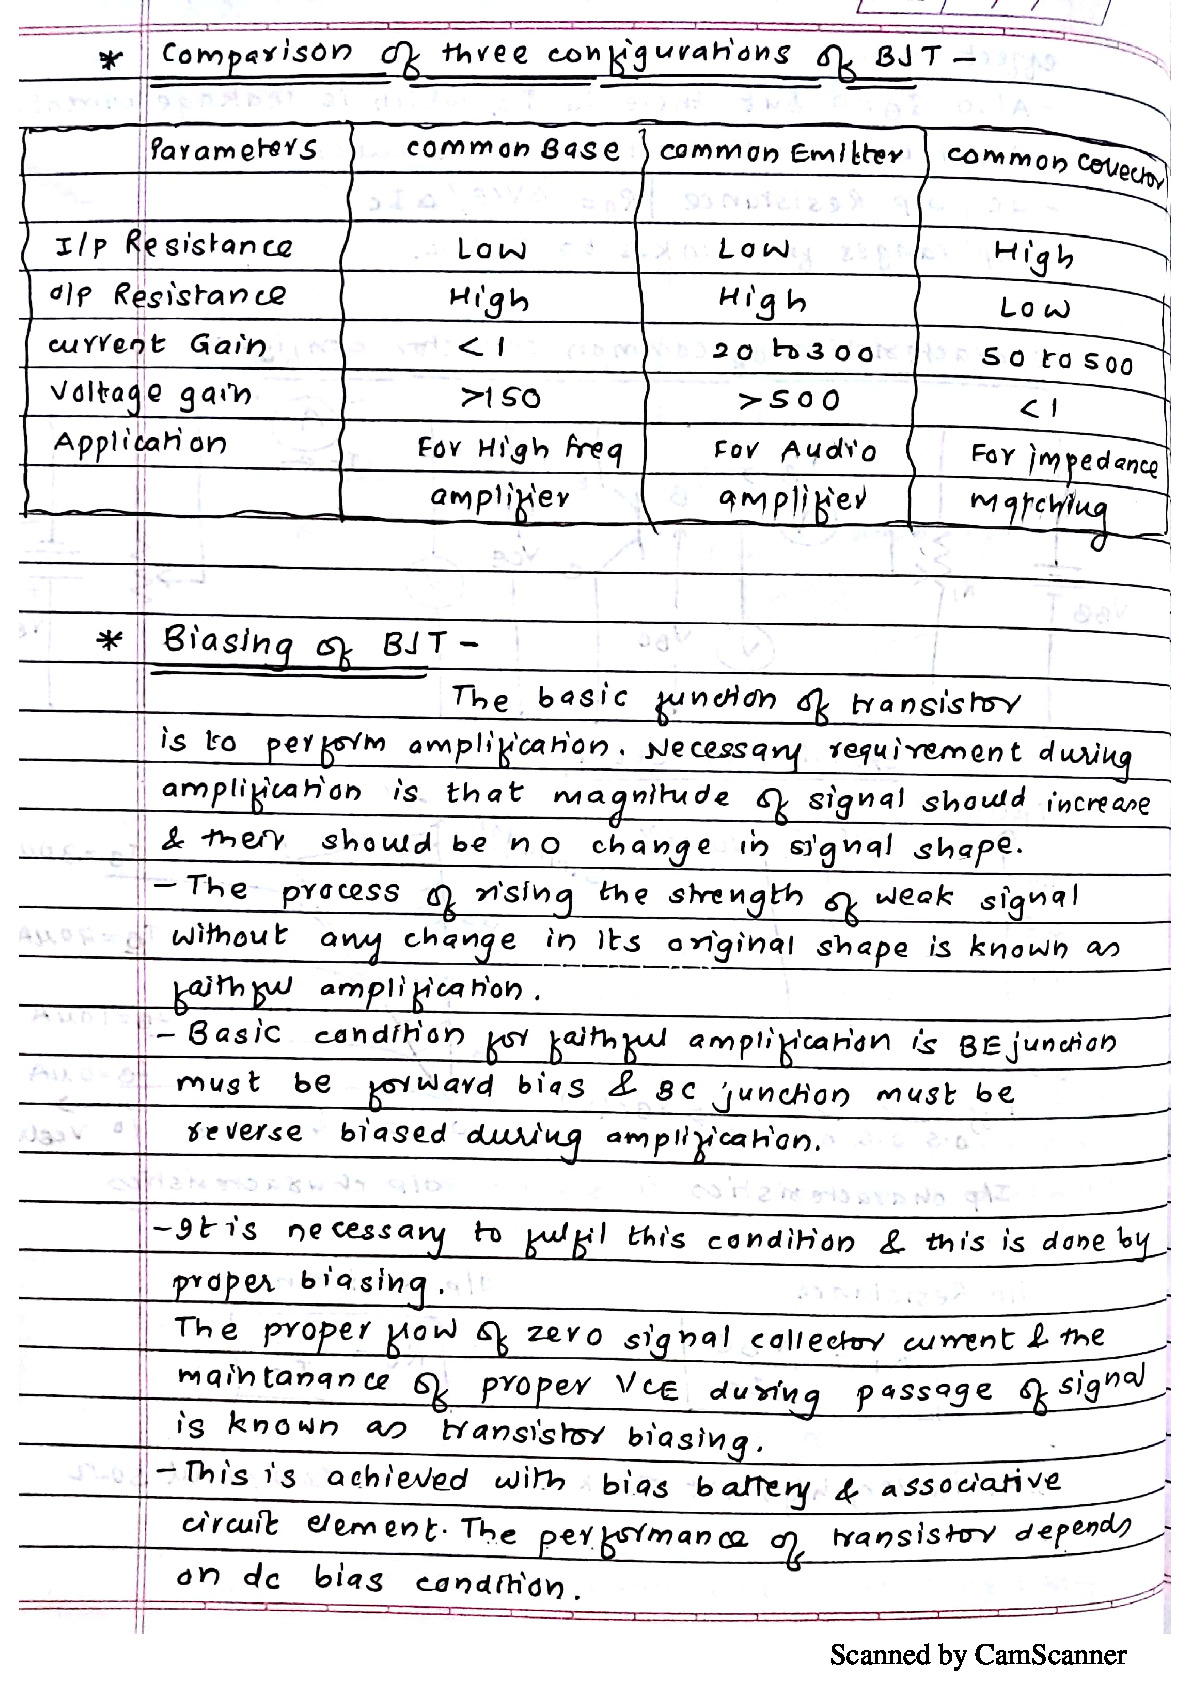 * Comparison of three configurations of BJT -
Parameters common Base common Emitter common Collector
I/p Resistance Low Low High
o/p Resistance High High Low
current Gain <1 20 to 300 50 to 500
Voltage gain >150 >500 <1
Application For High freq For Audio For impedance
amplifier amplifier matching
* Biasing of BJT -
The basic function of transistor
is to perform amplification. Necessary requirement during
amplification is that magnitude of signal should increase
& their should be no change in signal shape.
- The process of rising the strength of weak signal
without any change in its original shape is known as
faithful amplification.
- Basic condition for faithful amplification is BE junction
must be forward bias & BC junction must be
reverse biased during amplification.
- It is necessary to fulfil this condition & this is done by
proper biasing.
The proper flow of zero signal collector current & the
maintanance of proper VCE during passage of signal
is known as transistor biasing.
- This is achieved with bias battery & associative
circuit element. The performance of transistor depends
on dc bias condition.
Scanned by CamScanner